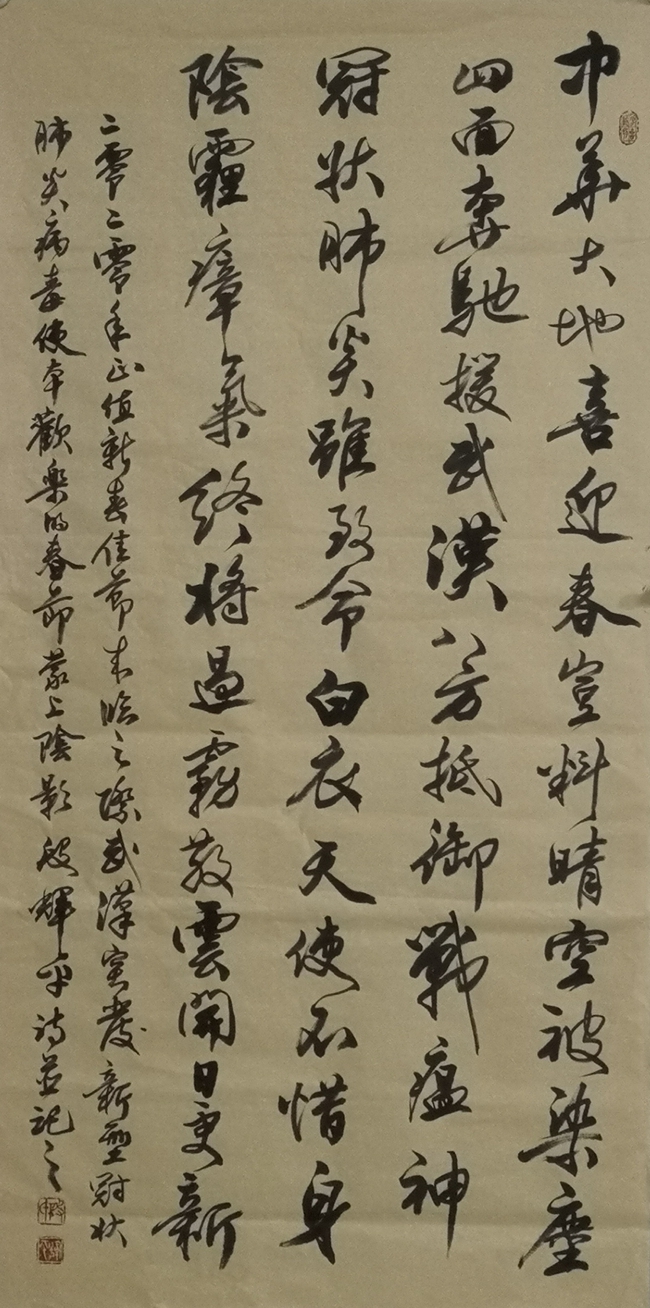 中華大地喜迎春豈料晴空被染塵
四面奔馳援武漢八方抵御戰瘟神
冠狀肺炎雖致命白衣天使不惜身
陰霾瘴氣終將過霧散雲開日更新
二零二零年正值新春佳節来臨之際武漢突发新型冠狀
肺炎病毒使本歡樂的春節蒙上陰影殷輝平诗並記之